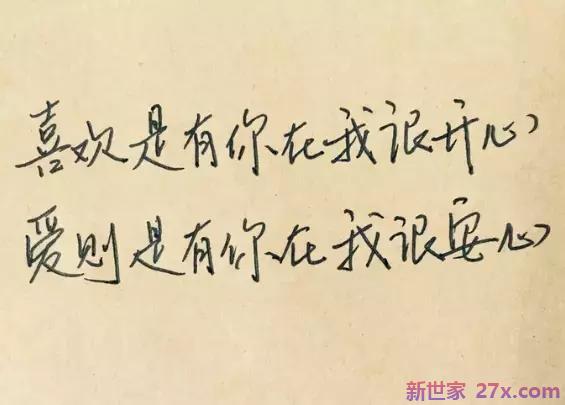 喜欢是有你在我很开心
爱则是有你在我很安心
新世家 27x.com